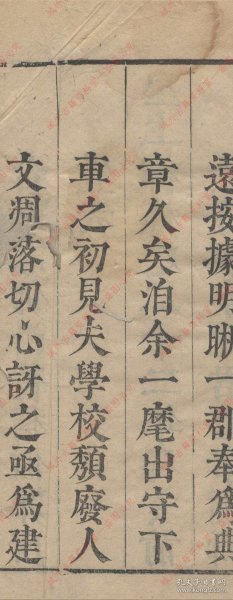 遠按據明晰一郡奉爲典
章久矣洎余一麾出守下
車之初見夫學校頹廢人
文凋落切心訝之亟爲建